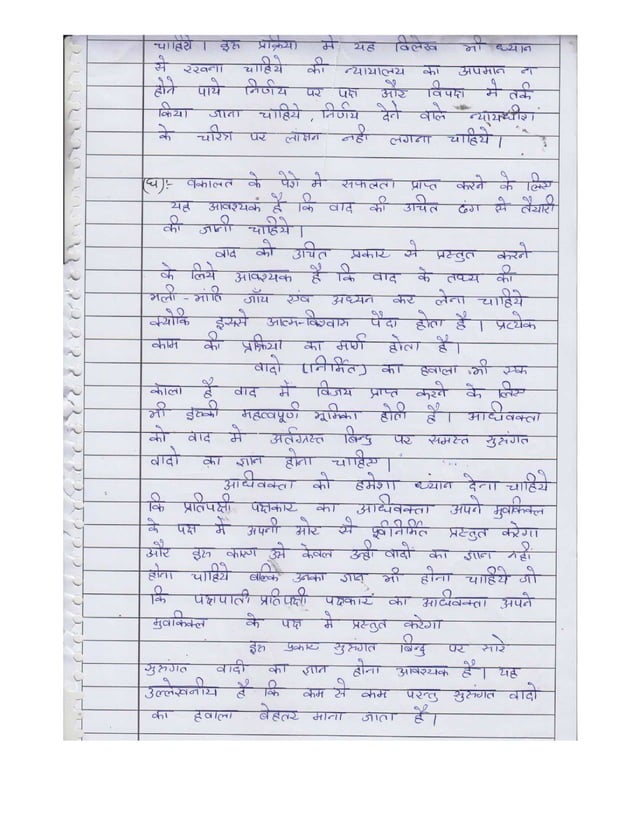 चाहिये। इस प्रक्रिया मे यह विलेख भी ध्यान
मे रखना चाहिये की न्यायालय का अपमान न
होने पाये निर्णय पर पक्ष और विपक्ष मे तर्क
किया जाना चाहिये, निर्णय देने वाले न्यायधीश
के चरित्र पर लांछन नही लगना चाहिये।
(घ):- वकालत के पेशे मे सफलता प्राप्त करने के लिए
यह आवश्यक है कि वाद की उचित ढंग से तैयारी
की जानी चाहिये।
वाद को उचित प्रकार से प्रस्तुत करने
के लिये आवश्यक है कि वाद के तथ्य की
भली-भांति जाँच एवं अध्यन कर लेना चाहिये
क्योकि इससे आत्म-विश्वास पैदा होता है। प्रत्येक
काम की प्रक्रिया का मर्ण होता है।
वादो (निर्मित) का हवाला भी एक
कला है वाद मे विजय प्राप्त करने के लिए
भी इसकी महत्वपूर्ण भूमिका होती है। अधिवक्ता
को वाद मे अर्तग्रस्त बिन्दु पर समस्त सुसंगत
वादो का ज्ञान होना चाहिए।
अधिवक्ता को हमेशा ध्यान देना चाहिये
कि प्रतिपक्षी पक्षकार का अधिवक्ता अपने मुवक्किल
के पक्ष मे अपनी ओर से पूर्वनिर्मित प्रस्तुत करेगा
और इस कारण उसे केवल उन्ही वादों का ज्ञान नही
होना चाहिये बल्कि उनका ज्ञान भी होना चाहिये जो
कि पक्षपाती प्रतिपक्षी पक्षकार का अधिवक्ता अपने
मुवक्किल के पक्ष मे प्रस्तुत करेगा
इस प्रकार सुसंगत बिन्दु पर सारे
सुसंगत वादो का ज्ञान होना आवश्यक है। यह
उल्लेखनीय है कि कम से कम परन्तु सुसंगत वादो
का हवाला बेहतर माना जाता है।